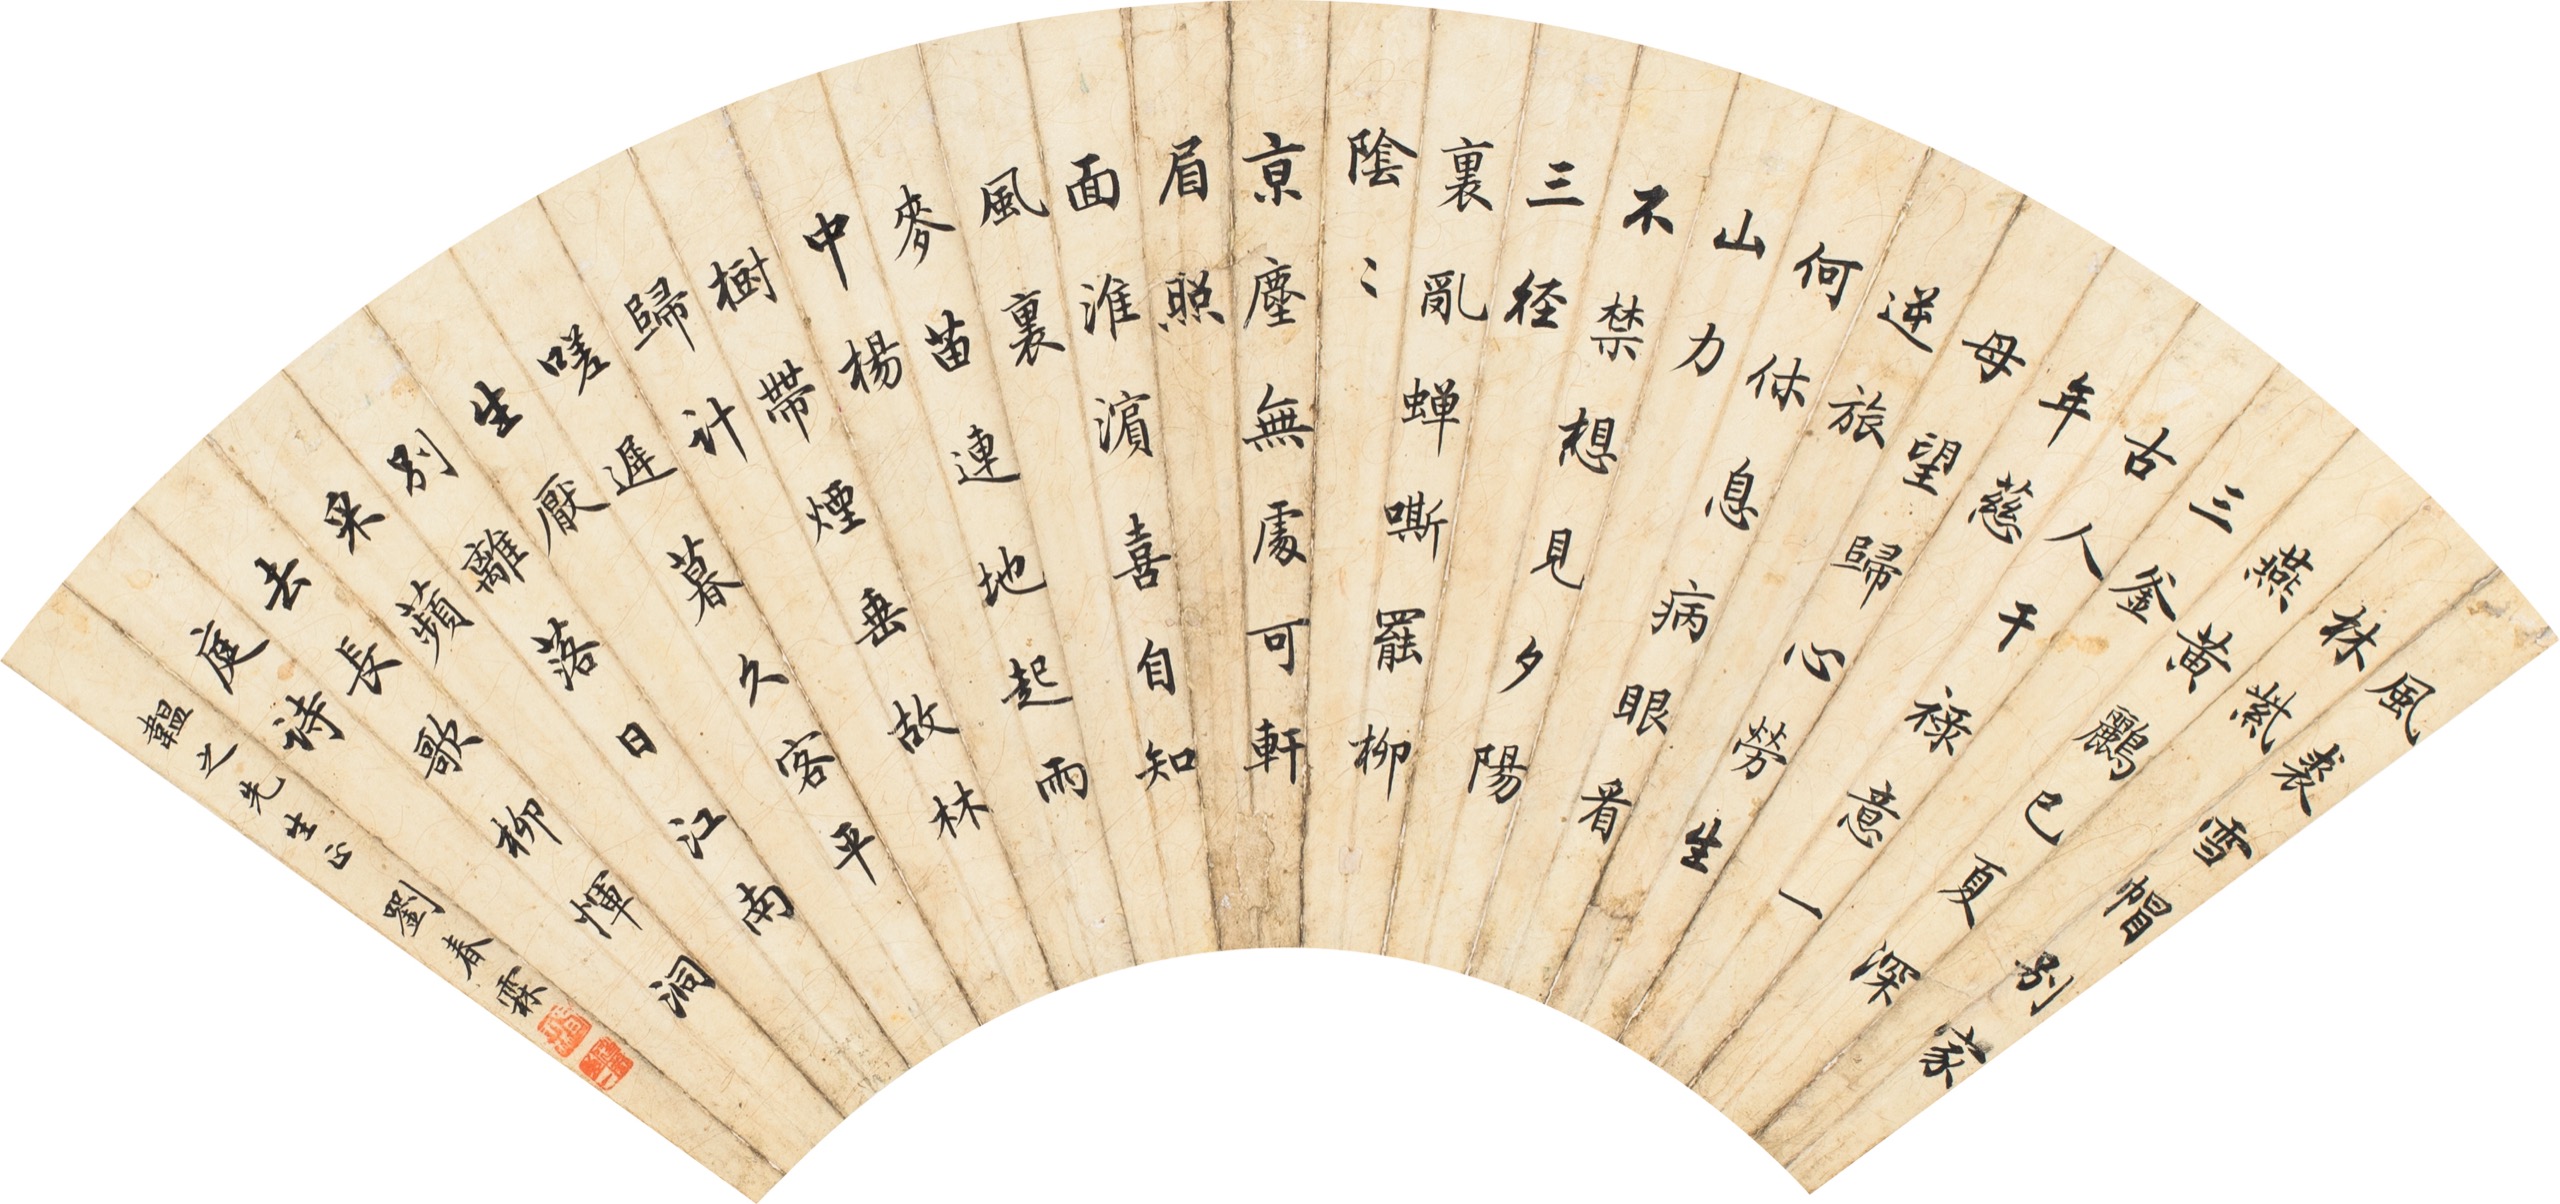 風裘雪帽別家
林紫
燕黃鸝已夏深
三釜
古人干祿意一
年慈
母望歸心勞生
逆旅
何休息病眼看
山力
不禁想見夕陽
三徑
裏亂蟬嘶罷柳
陰〻
京塵無處可軒
眉照
面淮濵喜自知
風裏
麥苗連地起雨
中楊
樹帶煙垂故林
歸計
嗟遲暮久客平
生厭
別離落日江南
采蘋
去長歌柳惲洞
庭詩
韞之先生正 劉春霖